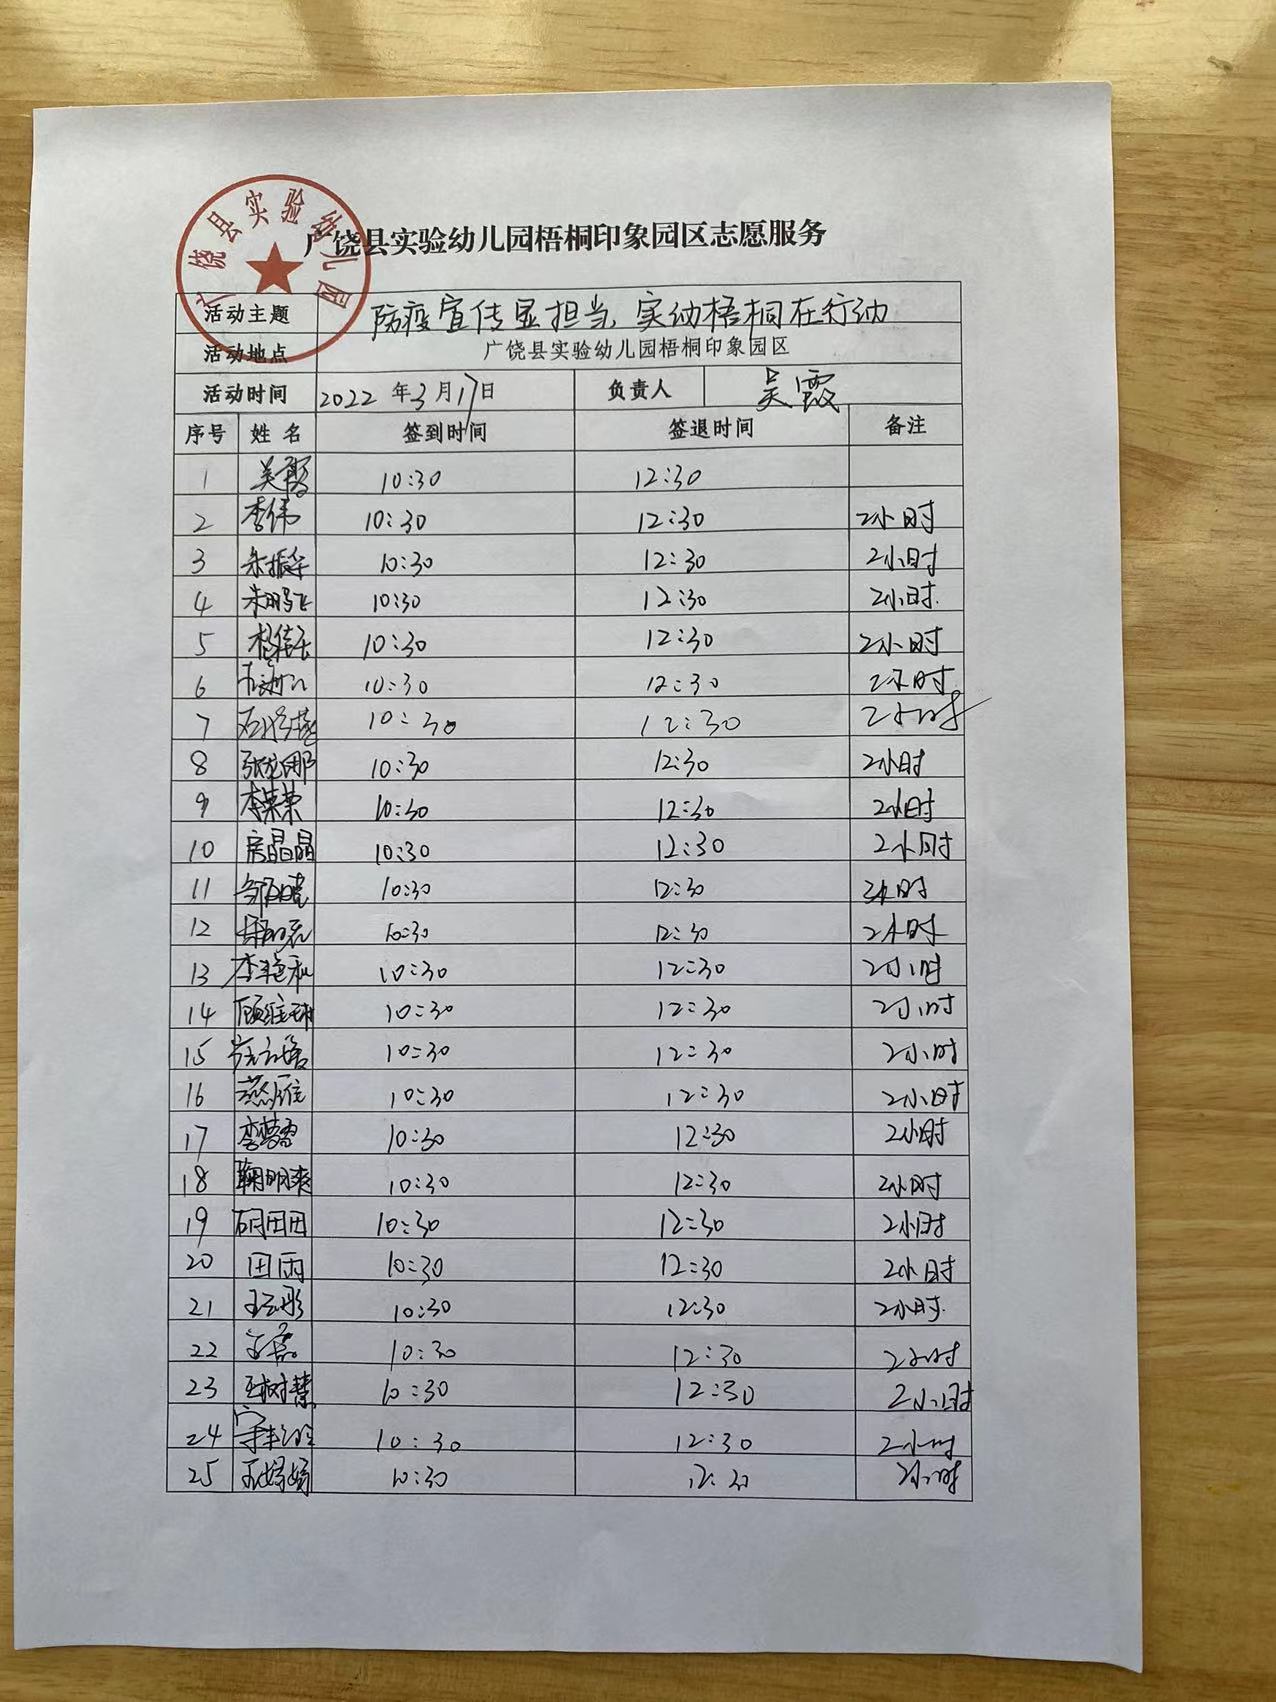 广饶县实验幼儿园
广饶县实验幼儿园梧桐印象园区志愿服务
活动主题 防疫宣传显担当、实幼梧桐在行动
活动地点 广饶县实验幼儿园梧桐印象园区
活动时间 2022年3月17日 负责人 吴霞
序号 姓名 签到时间 签退时间 备注
1 吴霞 10:30 12:30
2 李伟 10:30 12:30 2小时
3 10:30 12:30 2小时
4 朱鹏飞 10:30 12:30 2小时
5 10:30 12:30 2小时
6 10:30 12:30 2小时
7 10:30 12:30 2小时
8 10:30 12:30 2小时
9 李荣荣 10:30 12:30 2小时
10 房晶晶 10:30 12:30 2小时
11 10:30 12:30 2小时
12 10:30 12:30 2小时
13 10:30 12:30 2小时
14 10:30 12:30 2小时
15 10:30 12:30 2小时
16 10:30 12:30 2小时
17 10:30 12:30 2小时
18 鞠明爽 10:30 12:30 2小时
19 10:30 12:30 2小时
20 田雨 10:30 12:30 2小时
21 10:30 12:30 2小时
22 10:30 12:30 2小时
23 王树慧 10:30 12:30 2小时
24 10:30 12:30 2小时
25 10:30 12:30 2小时